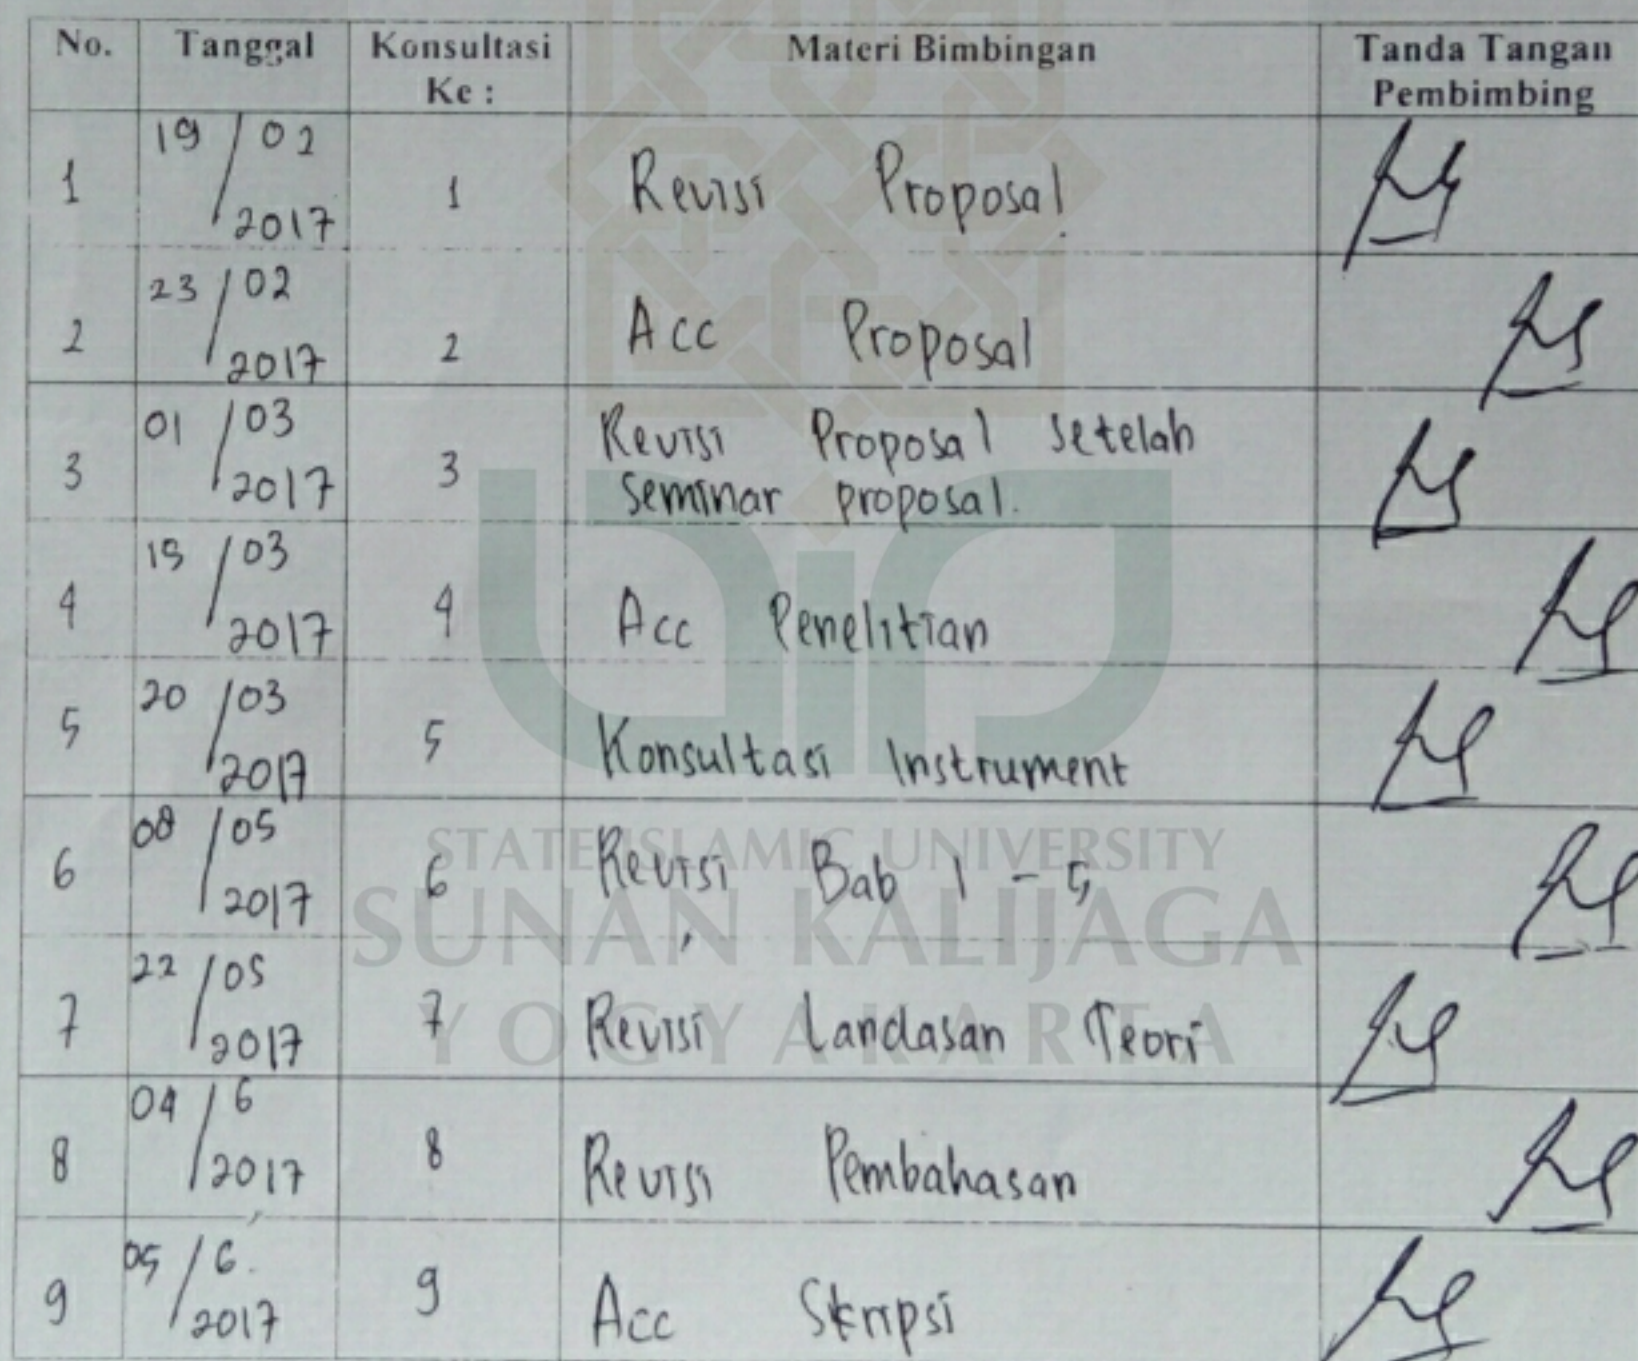 No. Tanggal Konsultasi Ke : Materi Bimbingan Tanda Tangan Pembimbing
1 19/02 2017 1 Revisi Proposal
2 23/02 2017 2 Acc Proposal
3 01/03 2017 3 Revisi Proposal setelah
seminar proposal.
4 15/03 2017 4 Acc Penelitian
5 20/03 2017 5 Konsultasi Instrument
6 08/05 2017 6 Revisi Bab 1 - 5
7 22/05 2017 7 Revisi Landasan Teori
8 04/6 2017 8 Revisi Pembahasan
9 05/6. 2017 9 Acc Skripsi
STATE ISLAMIC UNIVERSITY
SUNAN KALIJAGA
YOGYAKARTA